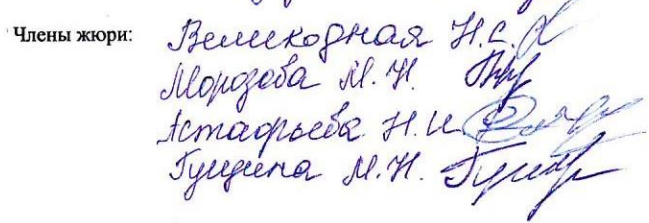 Члены жюри: Великодная Н.С.
Морозова М.Н.
Астафьева Н.И.
Гущина М.Н.